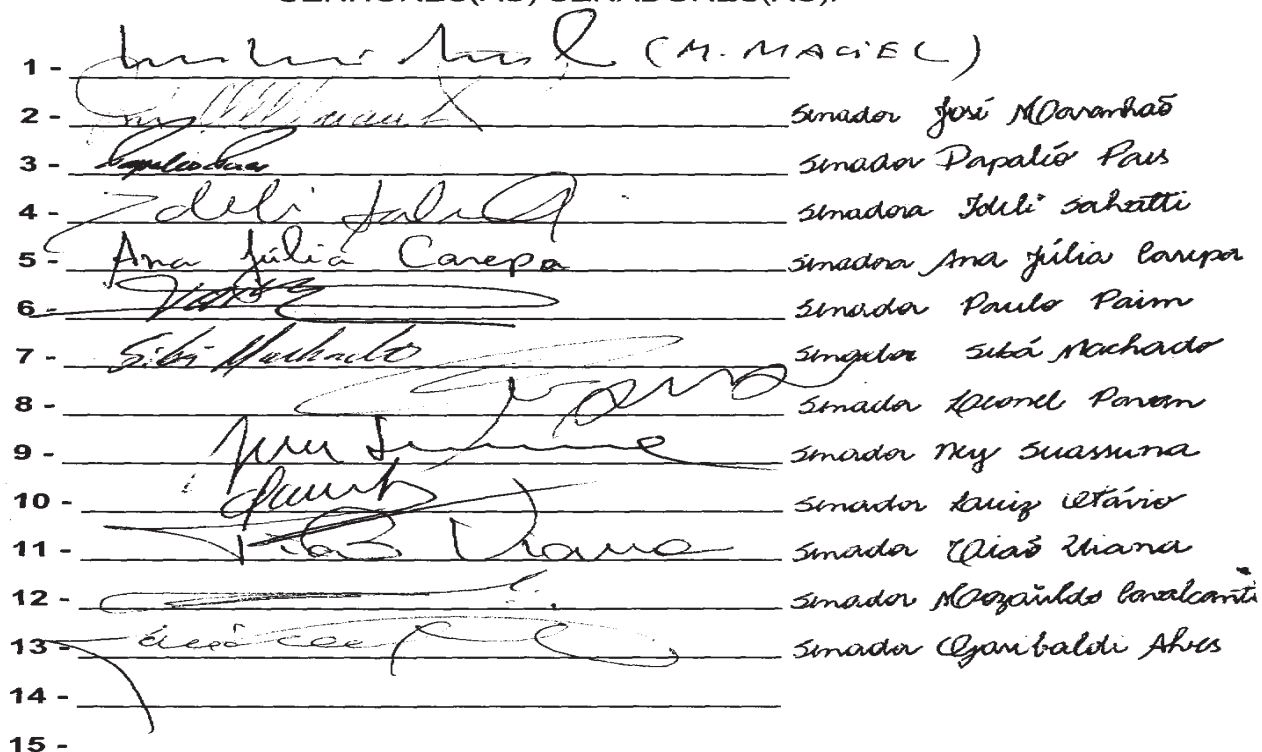 SENHORES(AS) SENADORES(AS):
1 - (M. MACIEL)
2 - Senador José Maranhaõ
3 - Senador Papaléo Paes
4 - Ideli Salvatti Senadora Ideli Salvatti
5 - Ana Júlia Carepa Senadora Ana Júlia Carepa
6 - Senador Paulo Paim
7 - Sibá Machado Senador Sibá Machado
8 - Senador Leonel Pavan
9 - Senador Ney Suassuna
10 - Senador Luiz Otávio
11 - Tião Viana Senador Tiaõ Viana
12 - Senador Mozarildo Cavalcanti
13 - Senador Garibaldi Alves
14 -
15 -